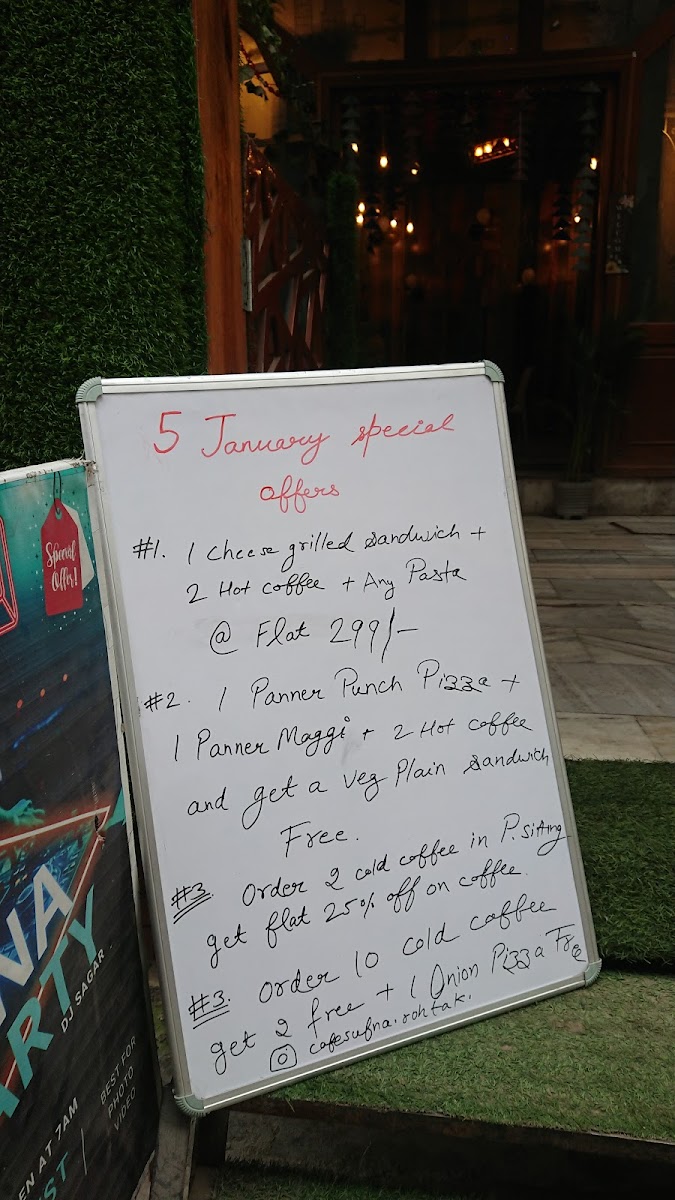 5 January special
offers
#1. 1 cheese grilled sandwich +
2 Hot coffee + Any Pasta
@ Flat 299/-
#2. 1 Panner Punch Pizza +
1 Panner Maggi + 2 Hot coffee
and get a veg Plain sandwich
Free.
#3. Order 2 cold coffee in P.sitting
get flat 25% off on coffee.
#3. Order 10 cold coffee
get 2 free + 1 Onion Pizza Free
cafesufna.rohtak.
Special
Offer!
NA
ARTY
DJ SAGAR
EN AT 7AM
ST
BEST FOR
PHOTO
VIDEO